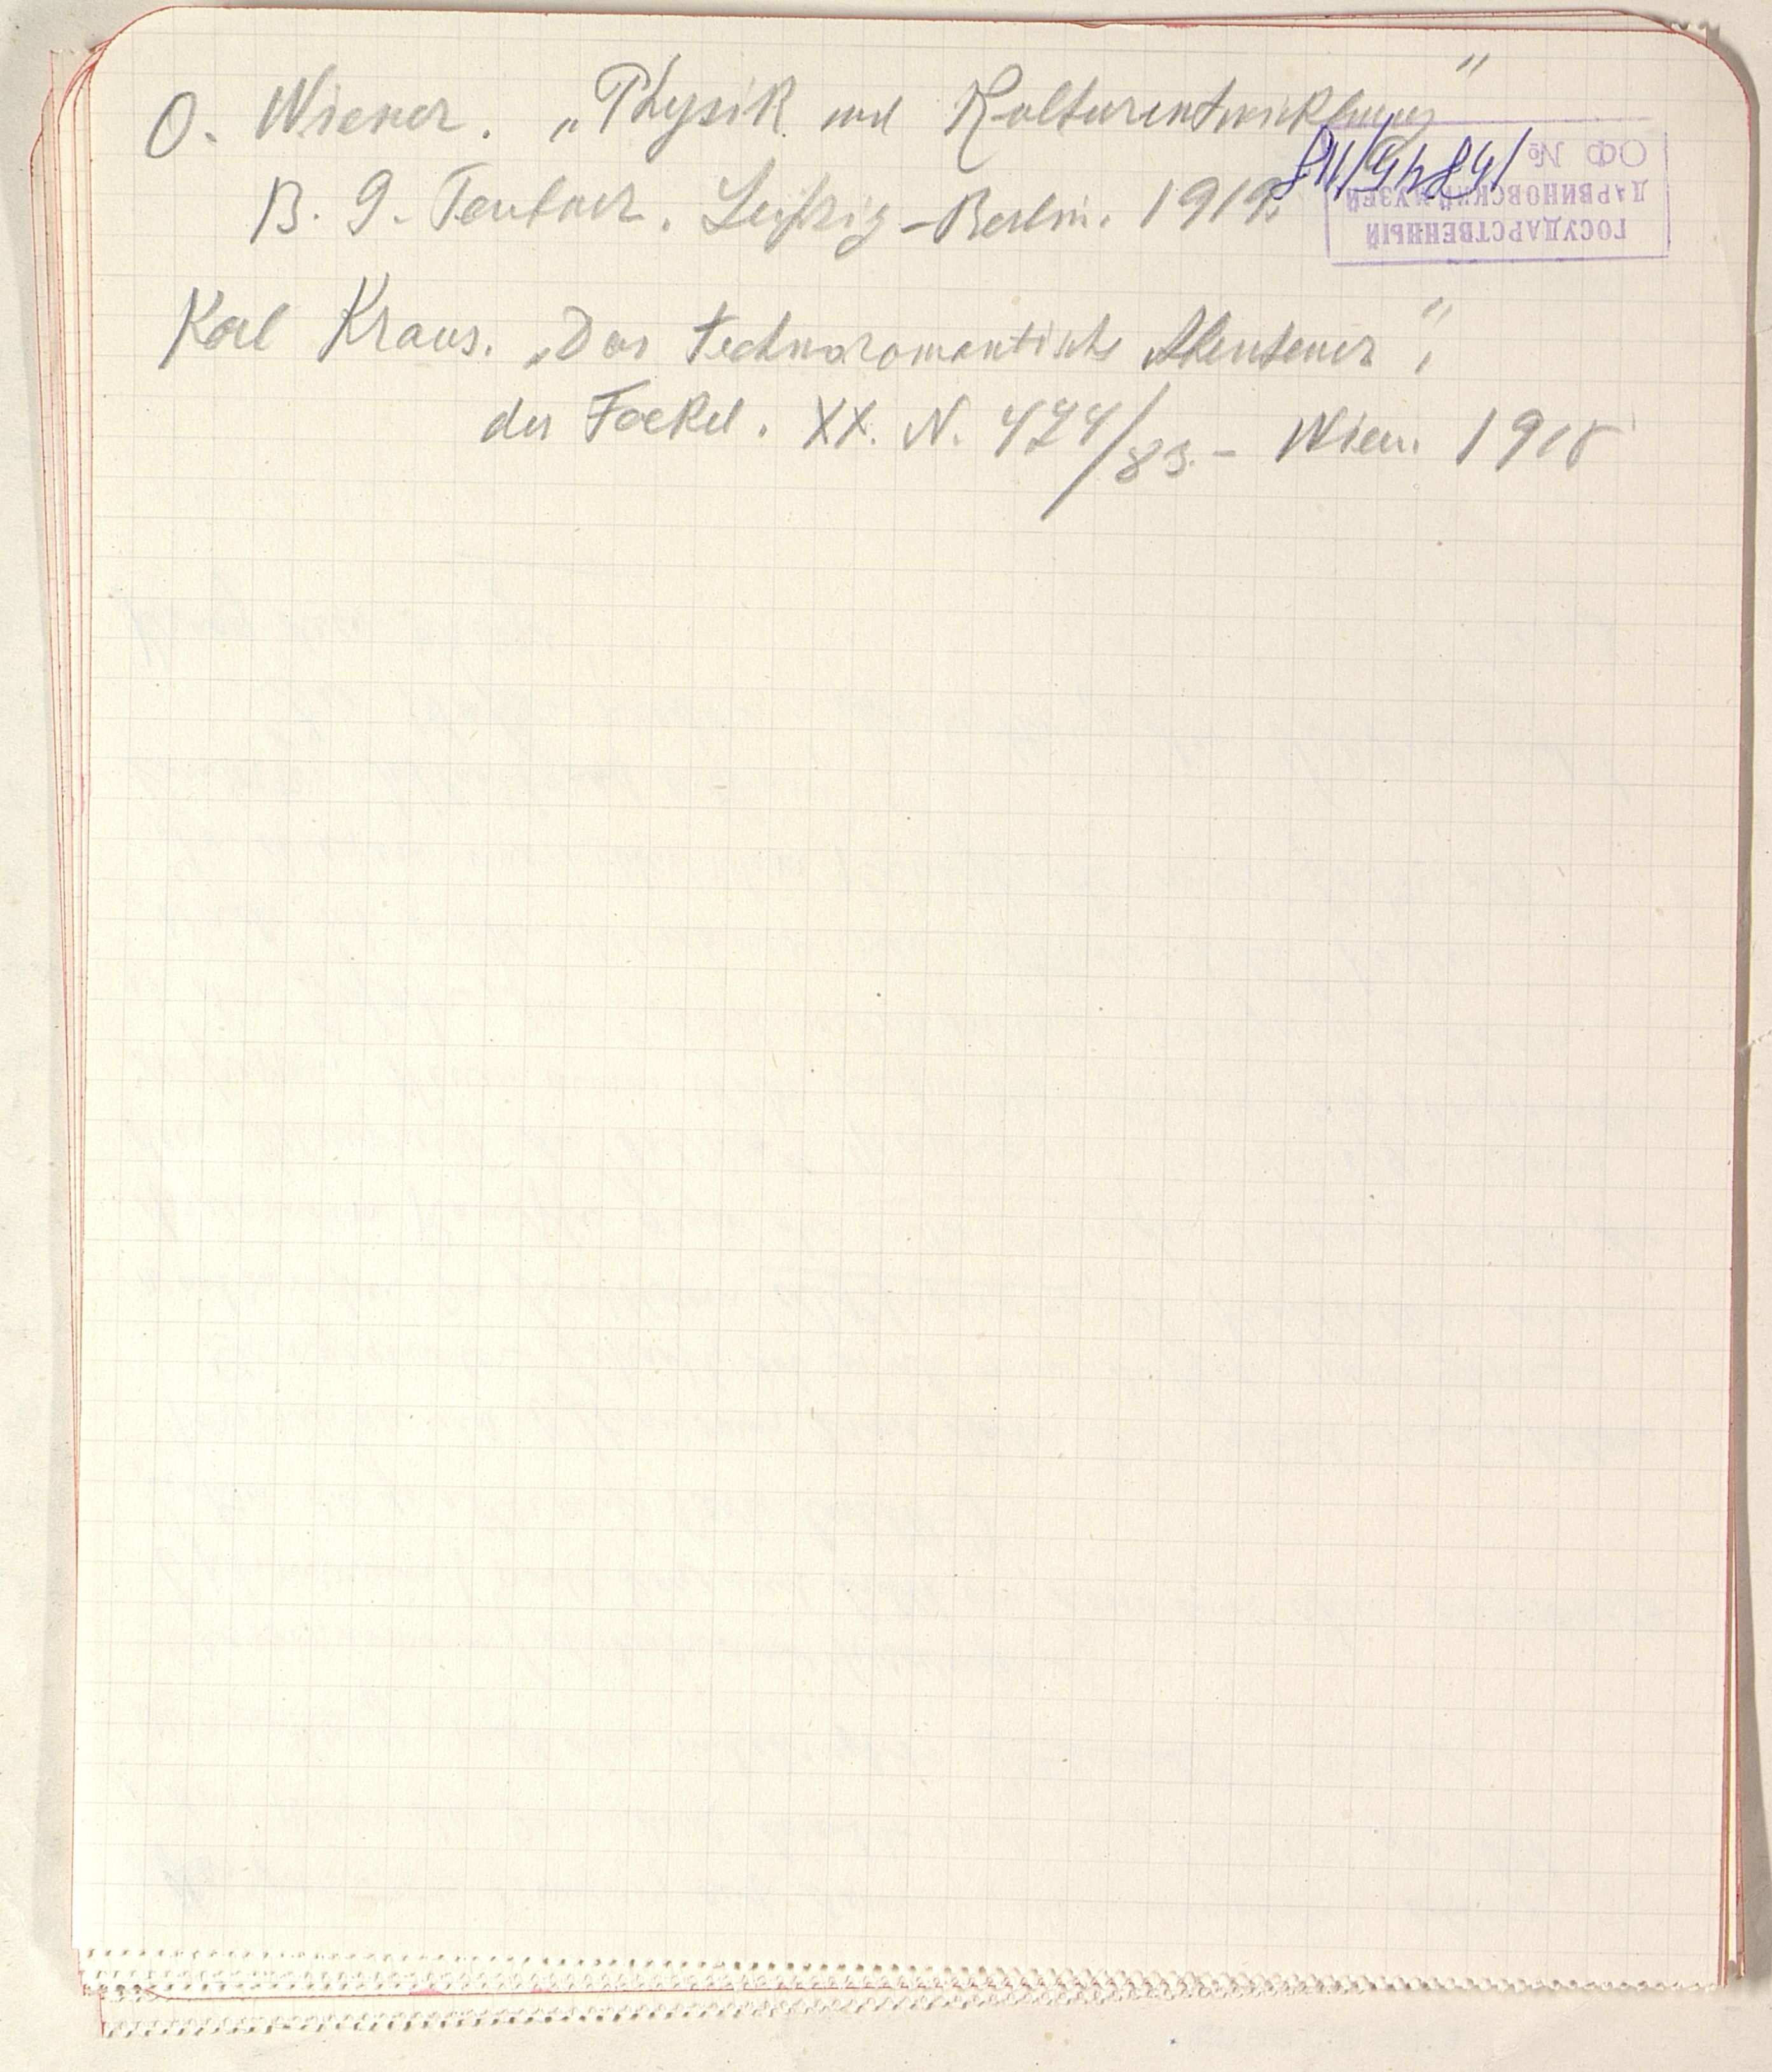 O. Wiener. „Physik und Kulturentwicklung"
B. G. Teubner. Leipzig-Berlin. 1919.
Karl Kraus. „Das technoromantische Abenteuer",
der Fackel. XX. N. 474/83. - Wien. 1918
ГОСУДАРСТВЕННЫЙ
ДАРВИНОВСКИЙ МУЗЕЙ
ОФ №